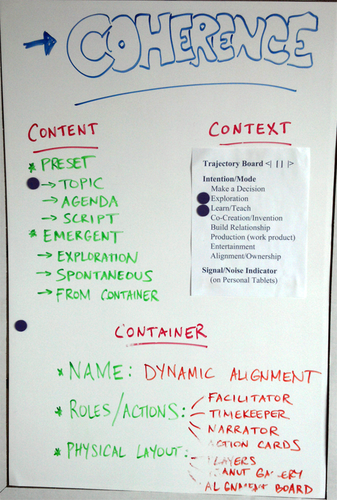 → COHERENCE
CONTENT
* PRESET
→ TOPIC
→ AGENDA
→ SCRIPT
* EMERGENT
→ EXPLORATION
→ SPONTANEOUS
→ FROM CONTAINER
CONTEXT
Trajectory Board <| || |>
Intention/Mode
Make a Decision
Exploration
Learn/Teach
Co-Creation/Invention
Build Relationship
Production (work product)
Entertainment
Alignment/Ownership
Signal/Noise Indicator
(on Personal Tablets)
CONTAINER
* NAME: DYNAMIC ALIGNMENT
* ROLES/ACTIONS: FACILITATOR
TIMEKEEPER
NARRATOR
ACTION CARDS
* PHYSICAL LAYOUT: LAYERS
GALLERY
ALIGNMENT BOARD